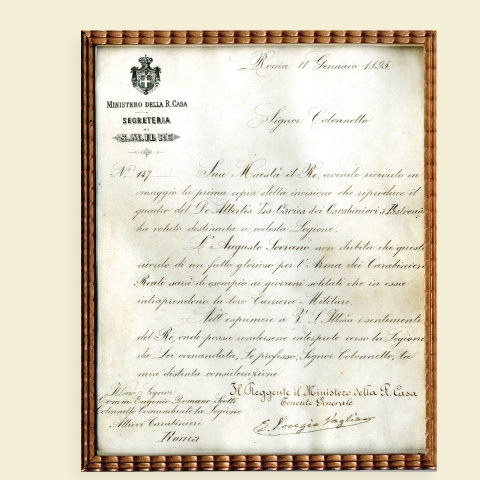 Roma 11 Gennaio 1895.
MINISTERO DELLA R. CASA
SEGRETERIA
DI
S.M. IL RE
Signor Colonnello
N° 147
Sua Maestà il Re, avendo ricevuto in
omaggio la prima copia della incisione che riproduce il
quadro del De Albertis "La Carica dei Carabinieri a Pastrengo"
ha voluto destinarla a codesta Legione.
L'Augusto Sovrano non dubita che questo
ricordo di un fatto glorioso per l'Arma dei Carabinieri
Reali sarà di esempio ai giovani soldati che in essa
intraprendono la loro Carriera Militare.
Nell'esprimere a V. S. Ill.ma i sentimenti
del Re, onde possa rendersene interprete verso la Legione
da Lei comandata, Le professo, Signor Colonnello, la
mia distinta considerazione
Il Reggente il Ministero della R. Casa
Tenente Generale
Ill.mo Signor
Comm. Eugenio Romano Scotti
Colonnello Comandante la Legione
Allievi Carabinieri
Roma